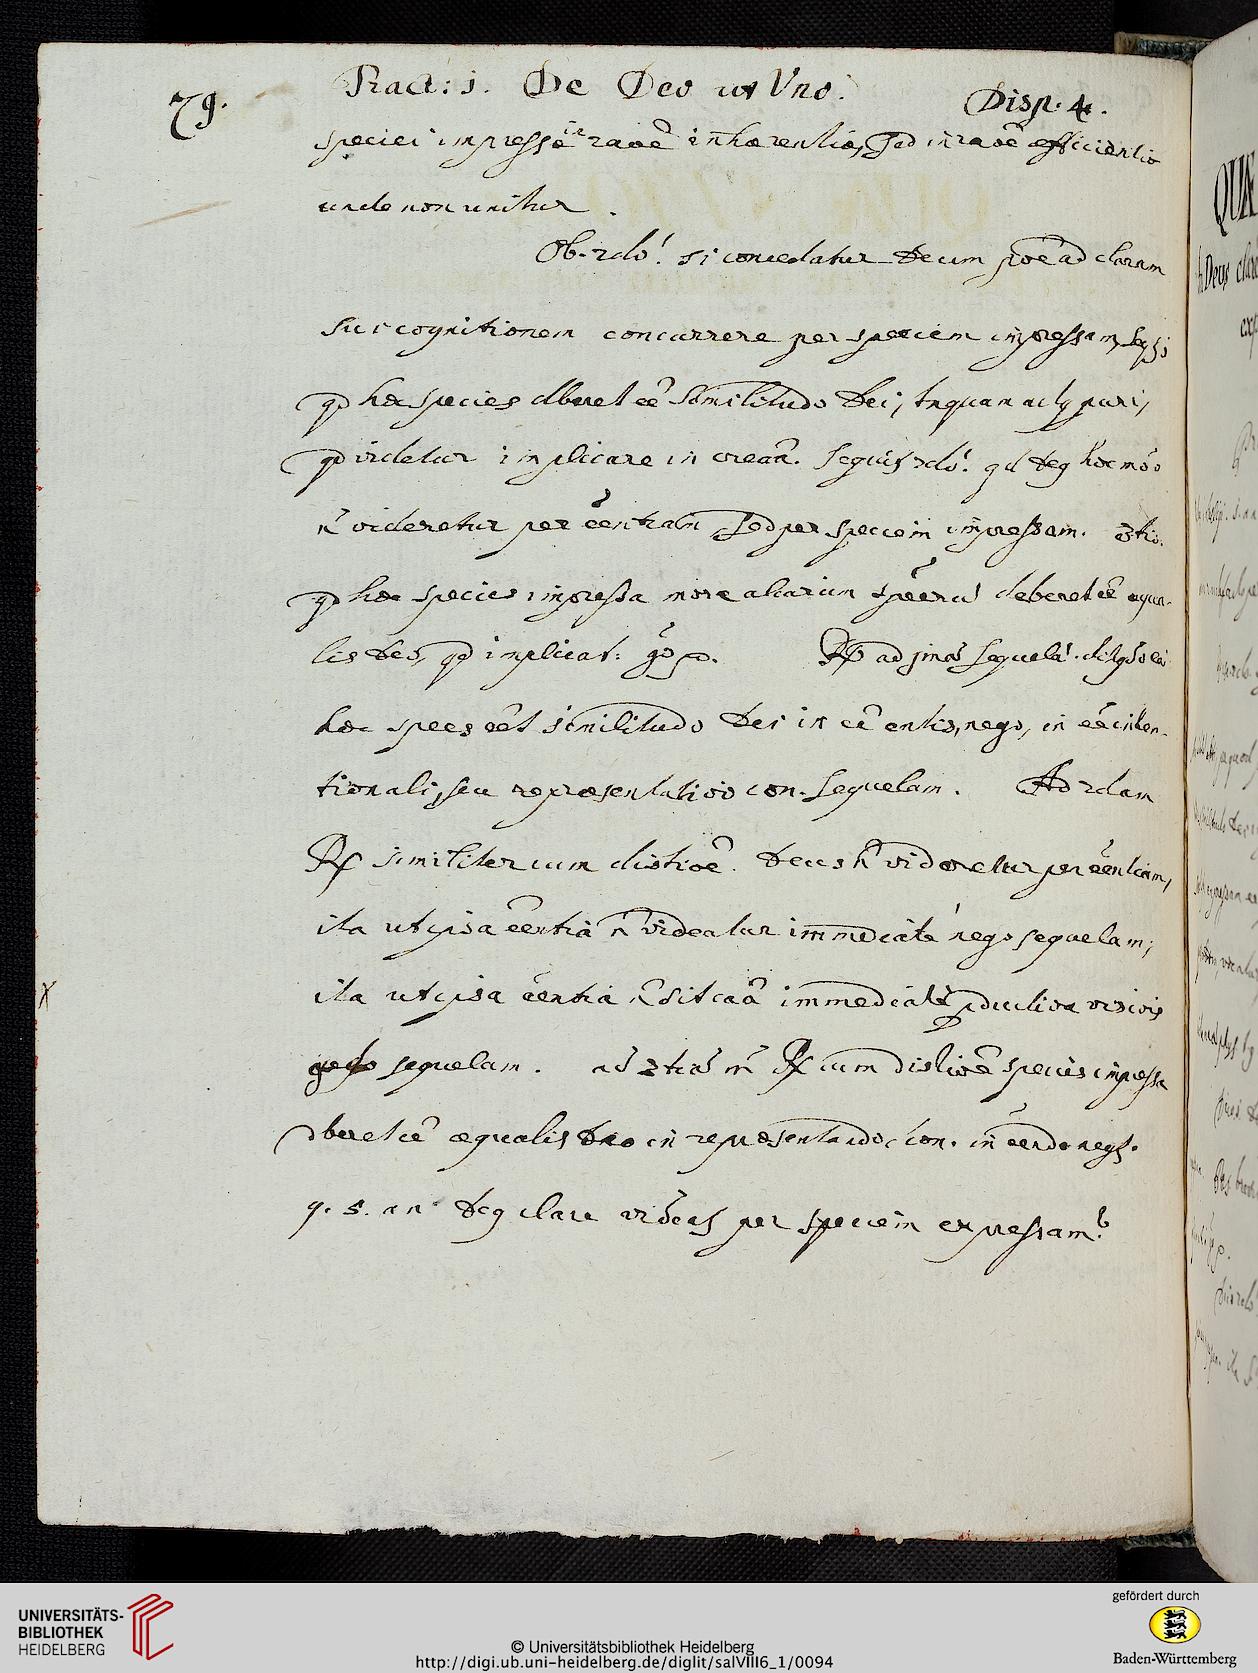 79. Tract: 1. De Deo ut Uno. Disp. 4.
speciei impressę in raõe inhærentis, sed in raõe efficientis
unde non unitur.
Ob. 2do. si concedatur Deum posse ad claram
sui cognitionem concurrere per speciem impressam, seqr
qd hæc species deberet eẽ similitudo Dei, tnquam actq puri,
qd videtur implicare in creaã. sequit 2do. qd deq hoc modo
ñ videretur per eẽntiam sed per speciem impressam. 3tio.
qd hæc species impressa more aliarum specerũ deberet eẽ æqua-
lis deo, qd implicat: gõ p. Rx ad 1mã sequelã. distgo eã
hæc spees eẽt similitudo Dei in eẽ entis, nego, in eẽ inten-
tionali, seu repræsentativo con. sequelam. Ad 2dam
Rx similiter cum distioẽ. Deus ñ videretur per eẽntiam,
ita ut ipsa eẽntia ñ videatur immediatè nego sequelam;
ita ut ipsa eẽntia ñ sit caã immediatè pductiva visiois
nego sequelam. ad 3tiã m̃ Rx cum distioẽ species impressa
dberet eẽ æqualis Deo in repræsentando, con. in eẽndo nego.
q. 5. an deq clare videas per speciem expressam?
X
QUÆ
Deus cla
UNIVERSITÄTS-
BIBLIOTHEK
HEIDELBERG
© Universitätsbibliothek Heidelberg
http://digi.ub.uni-heidelberg.de/diglit/salVIII6_1/0094
gefördert durch
Baden-Württemberg